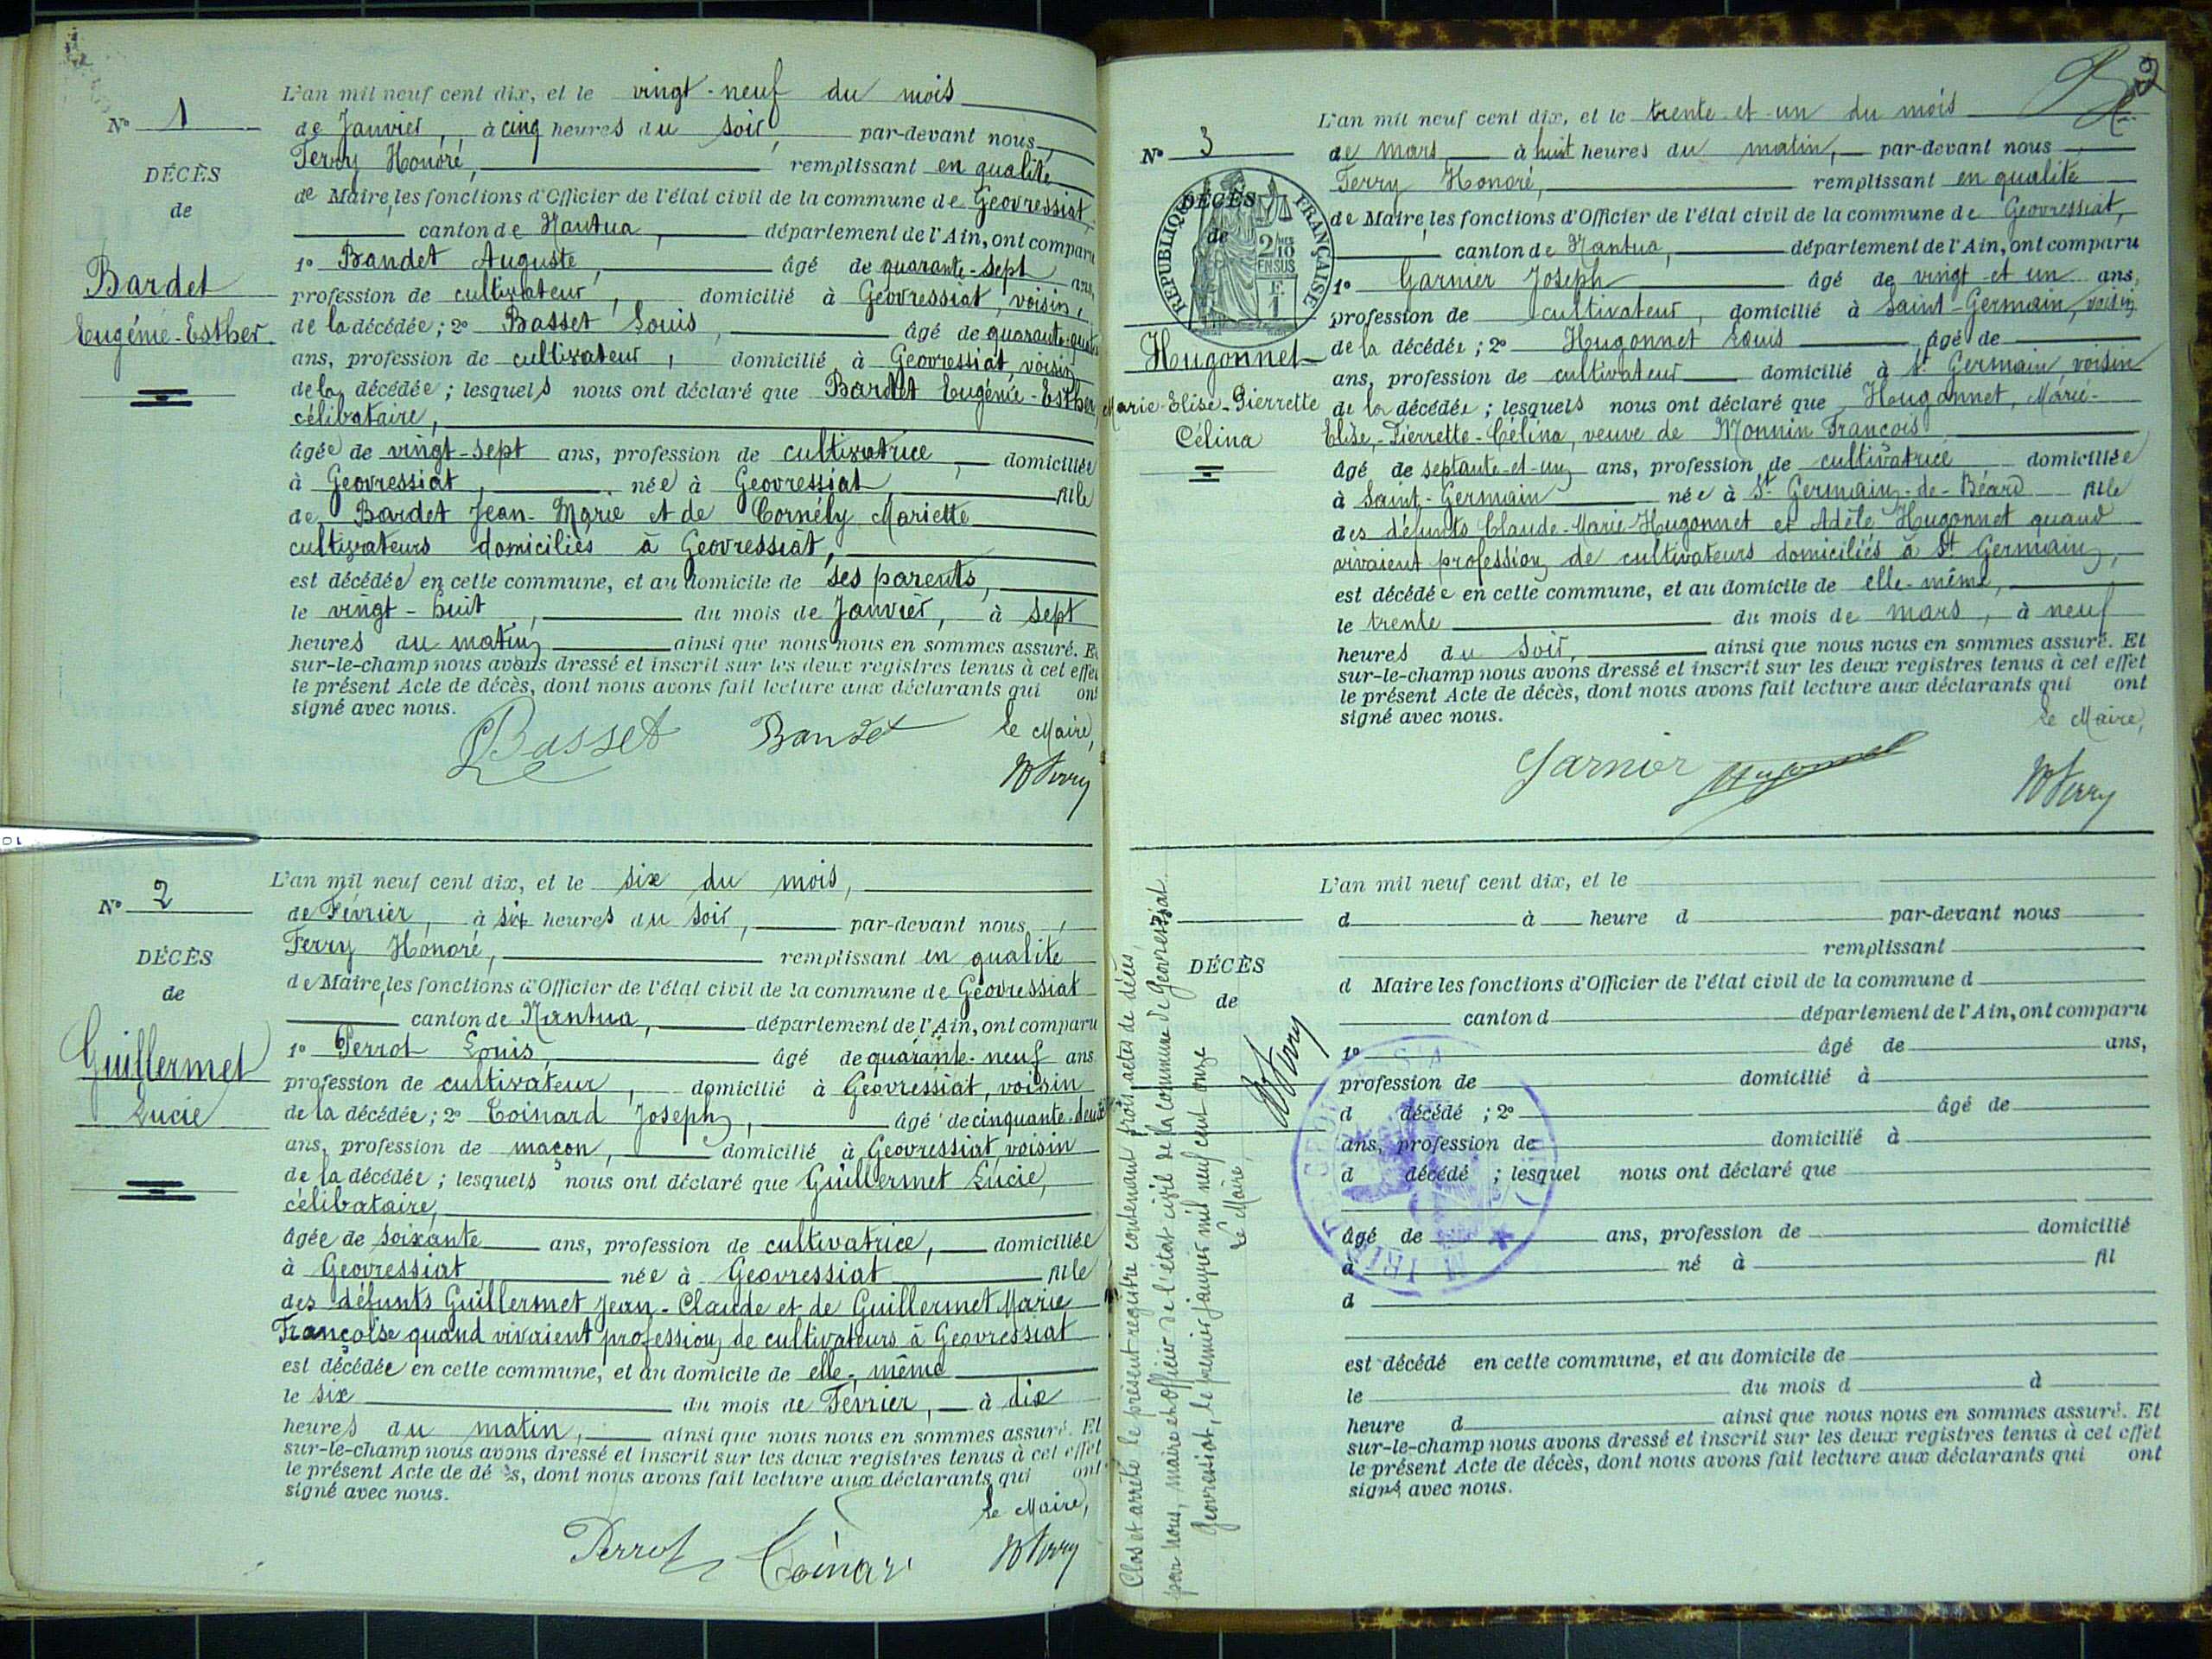 L'an mil neuf cent dix, et le vingt-neuf du mois
Nº 1
de Janvier, à cinq heures du soir, par-devant nous
Ferry Honoré, remplissant en qualité
DÉCÈS
de
de Maire, les fonctions d'Officier de l'état civil de la commune de Géovressiat,
canton de Nantua, département de l'Ain, ont comparu
1º Bandet Auguste, âgé de quarante-sept ans,
Bardet
Eugénie-Esther
profession de cultivateur, domicilié à Géovressiat, voisin,
de la décédée; 2º Basset Louis, âgé de quarante-quatre
ans, profession de cultivateur, domicilié à Géovressiat, voisin
de la décédée; lesquels nous ont déclaré que Bardet Eugénie-Esther
célibataire,
âgée de vingt-sept ans, profession de cultivatrice, domiciliée
à Géovressiat, née à Géovressiat fille
de Bardet Jean-Marie et de Cornély Mariette
cultivateurs domiciliés à Géovressiat,
est décédée en cette commune, et au domicile de ses parents,
le vingt-huit, du mois de Janvier, à sept
heures du matin, ainsi que nous nous en sommes assuré. Et
sur-le-champ nous avons dressé et inscrit sur les deux registres tenus à cet effet
le présent Acte de décès, dont nous avons fait lecture aux déclarants qui ont
signé avec nous.
le Maire,
Basset Bandet
H Ferry
L'an mil neuf cent dix, et le six du mois,
Nº 2
de Février, à six heures du soir, par-devant nous,
Ferry Honoré, remplissant en qualité
DÉCÈS
de
de Maire, les fonctions d'Officier de l'état civil de la commune de Géovressiat
canton de Nantua, département de l'Ain, ont comparu
1º Perrot Louis, âgé de quarante-neuf ans
Guillermet
Lucie
profession de cultivateur, domicilié à Géovressiat, voisin
de la décédée; 2º Coinard Joseph, âgé de cinquante-deux
ans, profession de maçon, domicilié à Géovressiat, voisin
de la décédée; lesquels nous ont déclaré que Guillermet Lucie,
célibataire,
âgée de soixante ans, profession de cultivatrice, domiciliée
à Géovressiat née à Géovressiat fille
des défunts Guillermet Jean-Claude et de Guillermet Marie
Françoise quand vivaient profession de cultivateurs à Géovressiat
est décédée en cette commune, et au domicile de elle-même
le six du mois de Février, à dix
heures du matin, ainsi que nous nous en sommes assuré. Et
sur-le-champ nous avons dressé et inscrit sur les deux registres tenus à cet effet
le présent Acte de décès, dont nous avons fait lecture aux déclarants qui ont
signé avec nous.
le Maire,
Perrot Coinard
H Ferry
2
L'an mil neuf cent dix, et le trente et un du mois
Nº 3
de mars à huit heures du matin, par-devant nous
Ferry Honoré, remplissant en qualité
DÉCÈS
de
RÉPUBLIQUE FRANÇAISE
2/10 EN SUS
1 F.
de Maire, les fonctions d'Officier de l'état civil de la commune de Géovressiat,
canton de Nantua, département de l'Ain, ont comparu
1º Garnier Joseph âgé de vingt et un ans,
profession de cultivateur, domicilié à Saint-Germain, voisin
Hugonnet
Marie-Elise-Pierrette
Célina
de la décédée; 2º Hugonnet Louis âgé de
ans, profession de cultivateur domicilié à St Germain, voisin
de la décédée; lesquels nous ont déclaré que Hugonnet, Marie-
Elise-Pierrette-Célina, veuve de Monnin François
âgé de septante-et-un ans, profession de cultivatrice domiciliée
à Saint-Germain née à St Germain-de-Béard fille
des défunts Claude-Marie Hugonnet et Adèle Hugonnet quand
vivaient profession de cultivateurs domiciliés à St Germain,
est décédée en cette commune, et au domicile de elle-même,
le trente du mois de mars, à neuf
heures du soir, ainsi que nous nous en sommes assuré. Et
sur-le-champ nous avons dressé et inscrit sur les deux registres tenus à cet effet
le présent Acte de décès, dont nous avons fait lecture aux déclarants qui ont
signé avec nous.
le Maire,
Garnier Hugonnet
H Ferry
Clos et arrêté le présent registre contenant trois actes de décès,
par nous, maire et officier de l'état civil de la commune de Géovressiat
Géovressiat, le premier janvier mil neuf cent onze
Le Maire,
H Ferry
L'an mil neuf cent dix, et le
d à heure d par-devant nous
remplissant
DÉCÈS
de
d Maire les fonctions d'Officier de l'état civil de la commune d
canton d département de l'Ain, ont comparu
1º âgé de ans,
profession de domicilié à
d décédé ; 2º âgé de
ans, profession de domicilié à
d décédé ; lesquel nous ont déclaré que
âgé de ans, profession de domicilié
à né à fil
d
est décédé en cette commune, et au domicile de
le du mois d à
heure d ainsi que nous nous en sommes assuré. Et
sur-le-champ nous avons dressé et inscrit sur les deux registres tenus à cet effet
le présent Acte de décès, dont nous avons fait lecture aux déclarants qui ont
signé avec nous.